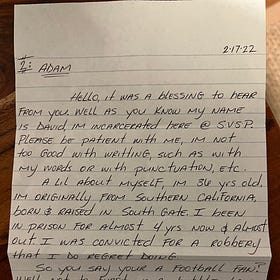 2-17-22
2: ADAM
HELLO, IT WAS A BLESSING TO HEAR
FROM YOU. WELL AS YOU KNOW MY NAME
IS DAVID, IM INCARCERATED HERE @ SVSP.
PLEASE BE PATIENT WITH ME, IM NOT
TOO GOOD WITH WRITTING, SUCH AS WITH
MY WORDS OR WITH PUNCTUATION, ETC.
A LIL ABOUT MYSELF, IM 34 YRS OLD.
IM ORIGINALLY FROM SOUTHERN CALIFORNIA,
BORN & RAISED IN SOUTH GATE. I BEEN
IN PRISON FOR ALMOST 4 YRS NOW & ALMOST
OUT. I WAS CONVICTED FOR A ROBBERY
THAT I DO REGRET DOING.
SO YOU SAY YOUR A FOOTBALL FAN?